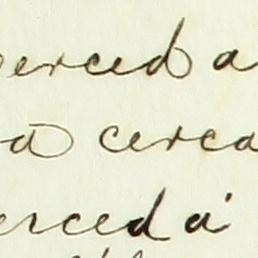 erced a
a cerca
erced á